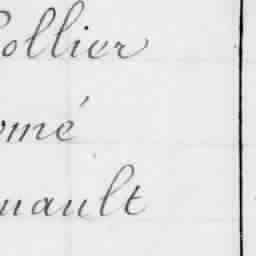 ollier
omé
uault